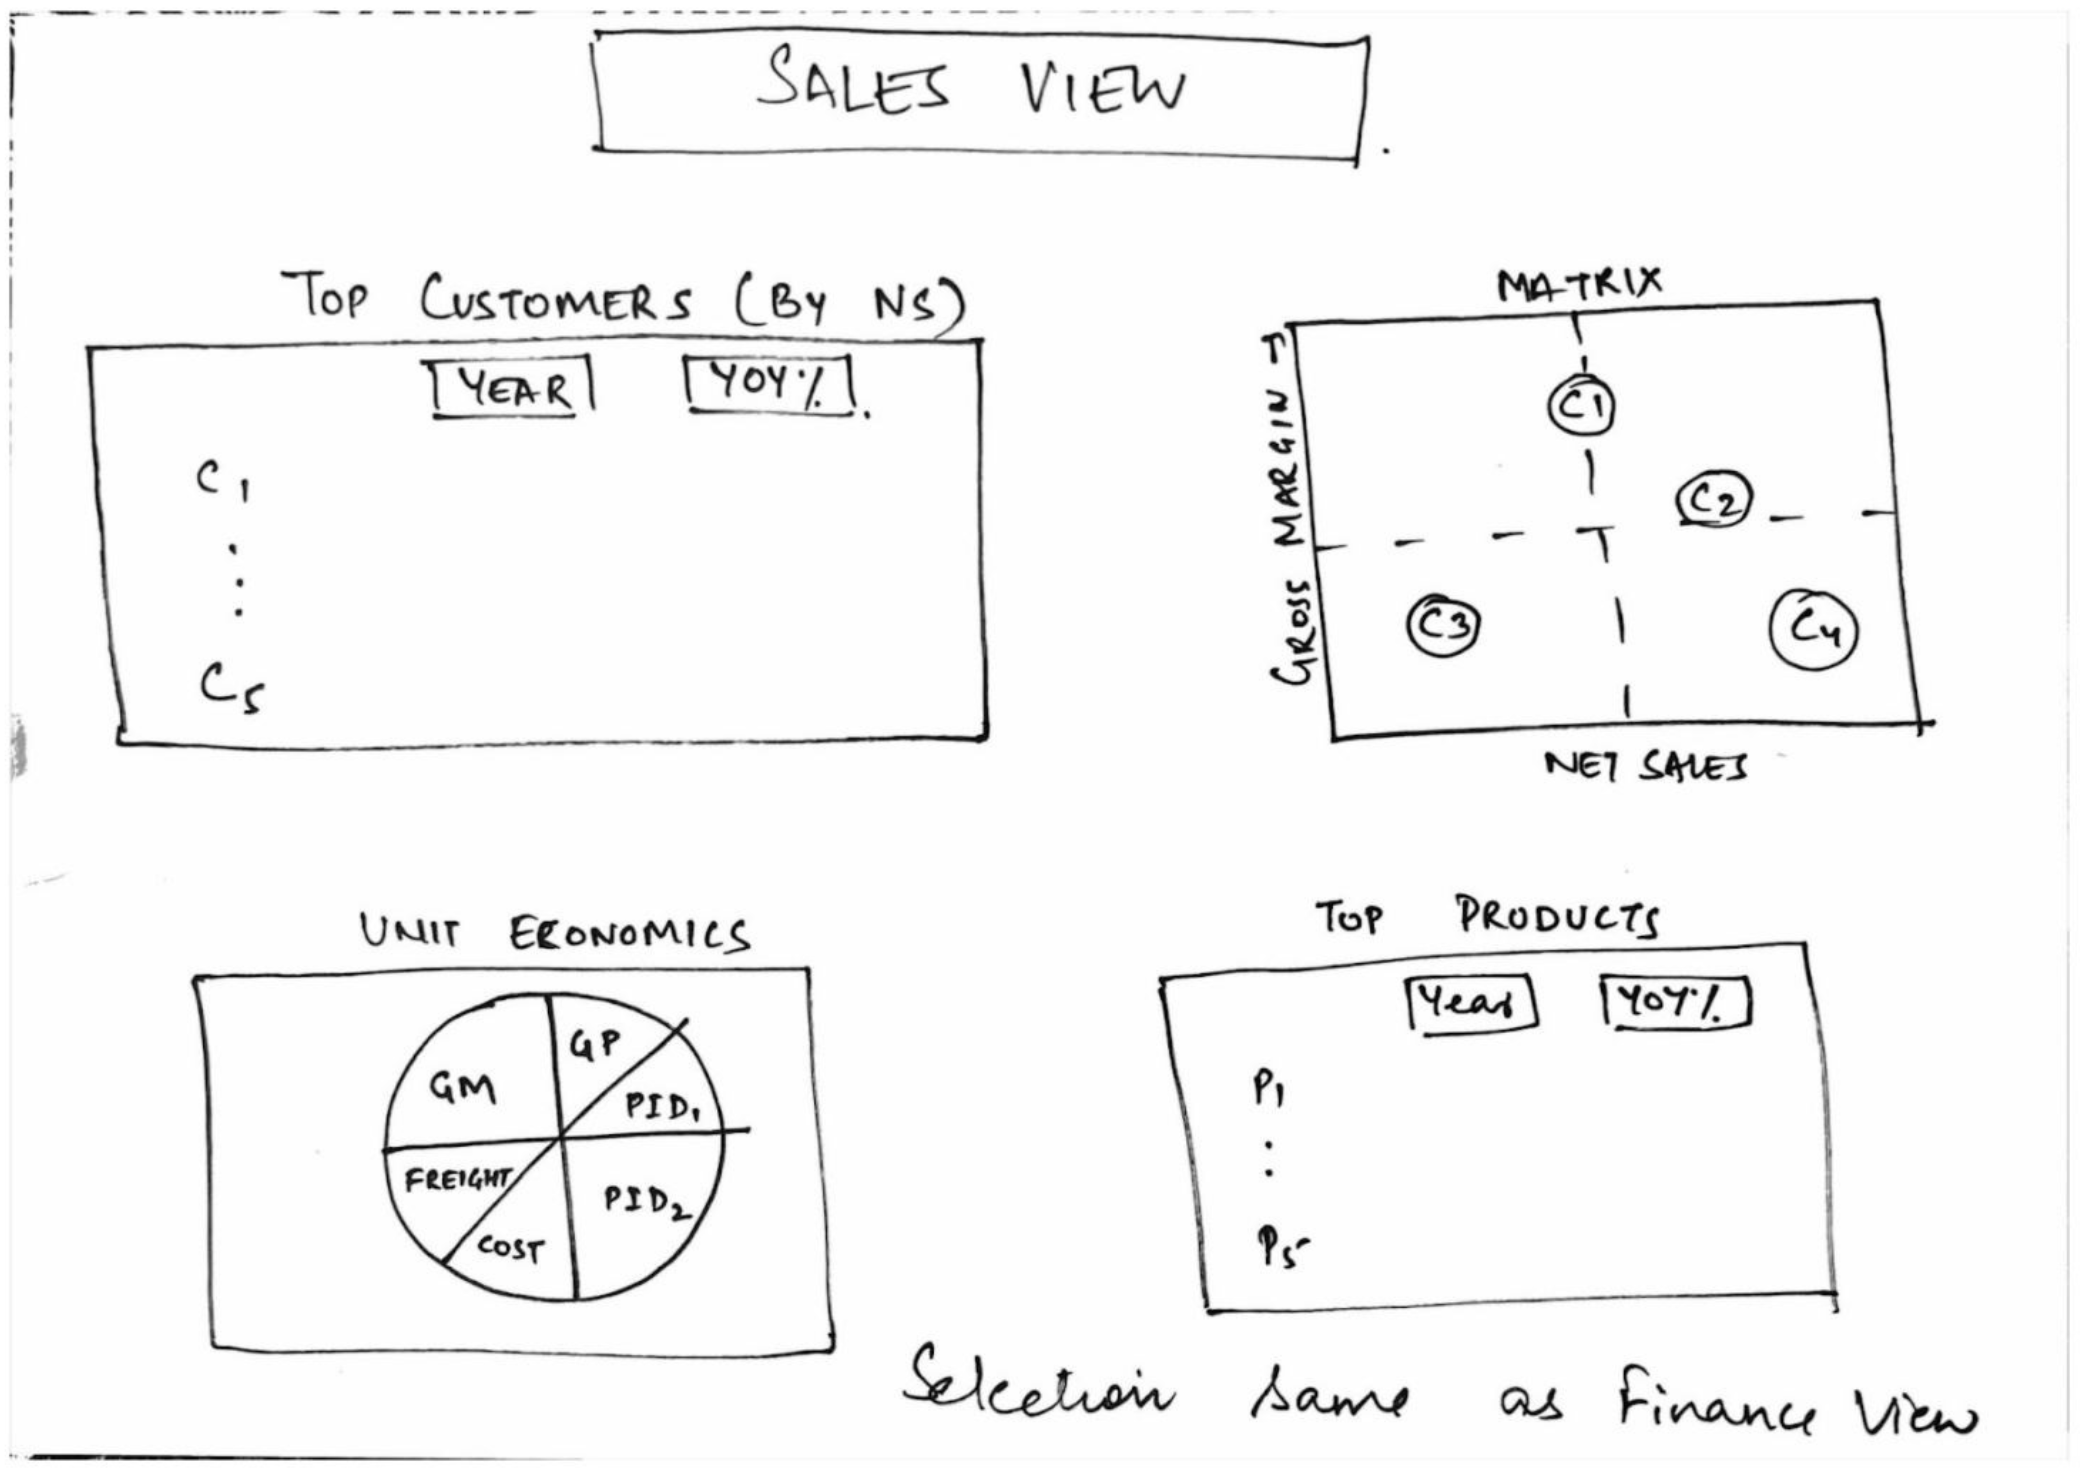 SALES VIEW
TOP CUSTOMERS (BY NS)
YEAR YOY%
C1
C5
MATRIX
GROSS MARGIN
C1
C2
C3
C4
NET SALES
UNIT ECONOMICS
GM GP
PID1
FREIGHT PID2
COST
TOP PRODUCTS
Year YOY%
P1
P5
Selection same as Finance View